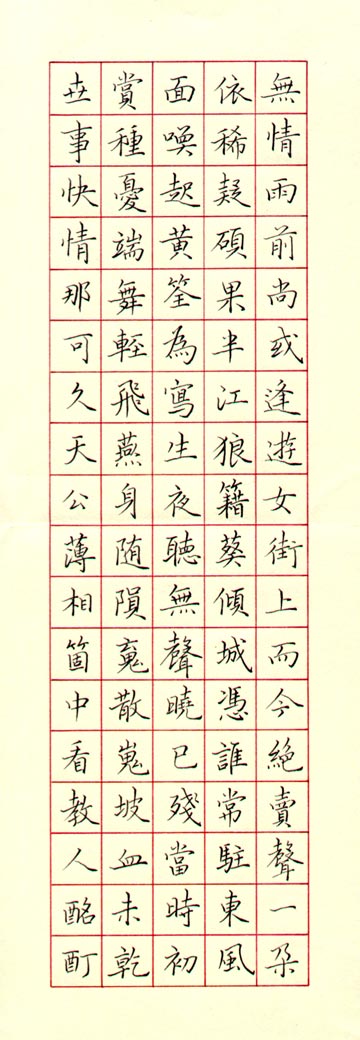 無情雨前尚或逢遊女街上而今絕賣聲一朵
依稀疑碩果半江狼籍葵傾城憑誰常駐東風
面喚起黄筌為寫生夜聽無聲曉已殘當時初
賞種憂端舞輕飛燕身随隕䰟散嵬坡血未乾
世事快情那可久天公薄相箇中看教人酩酊